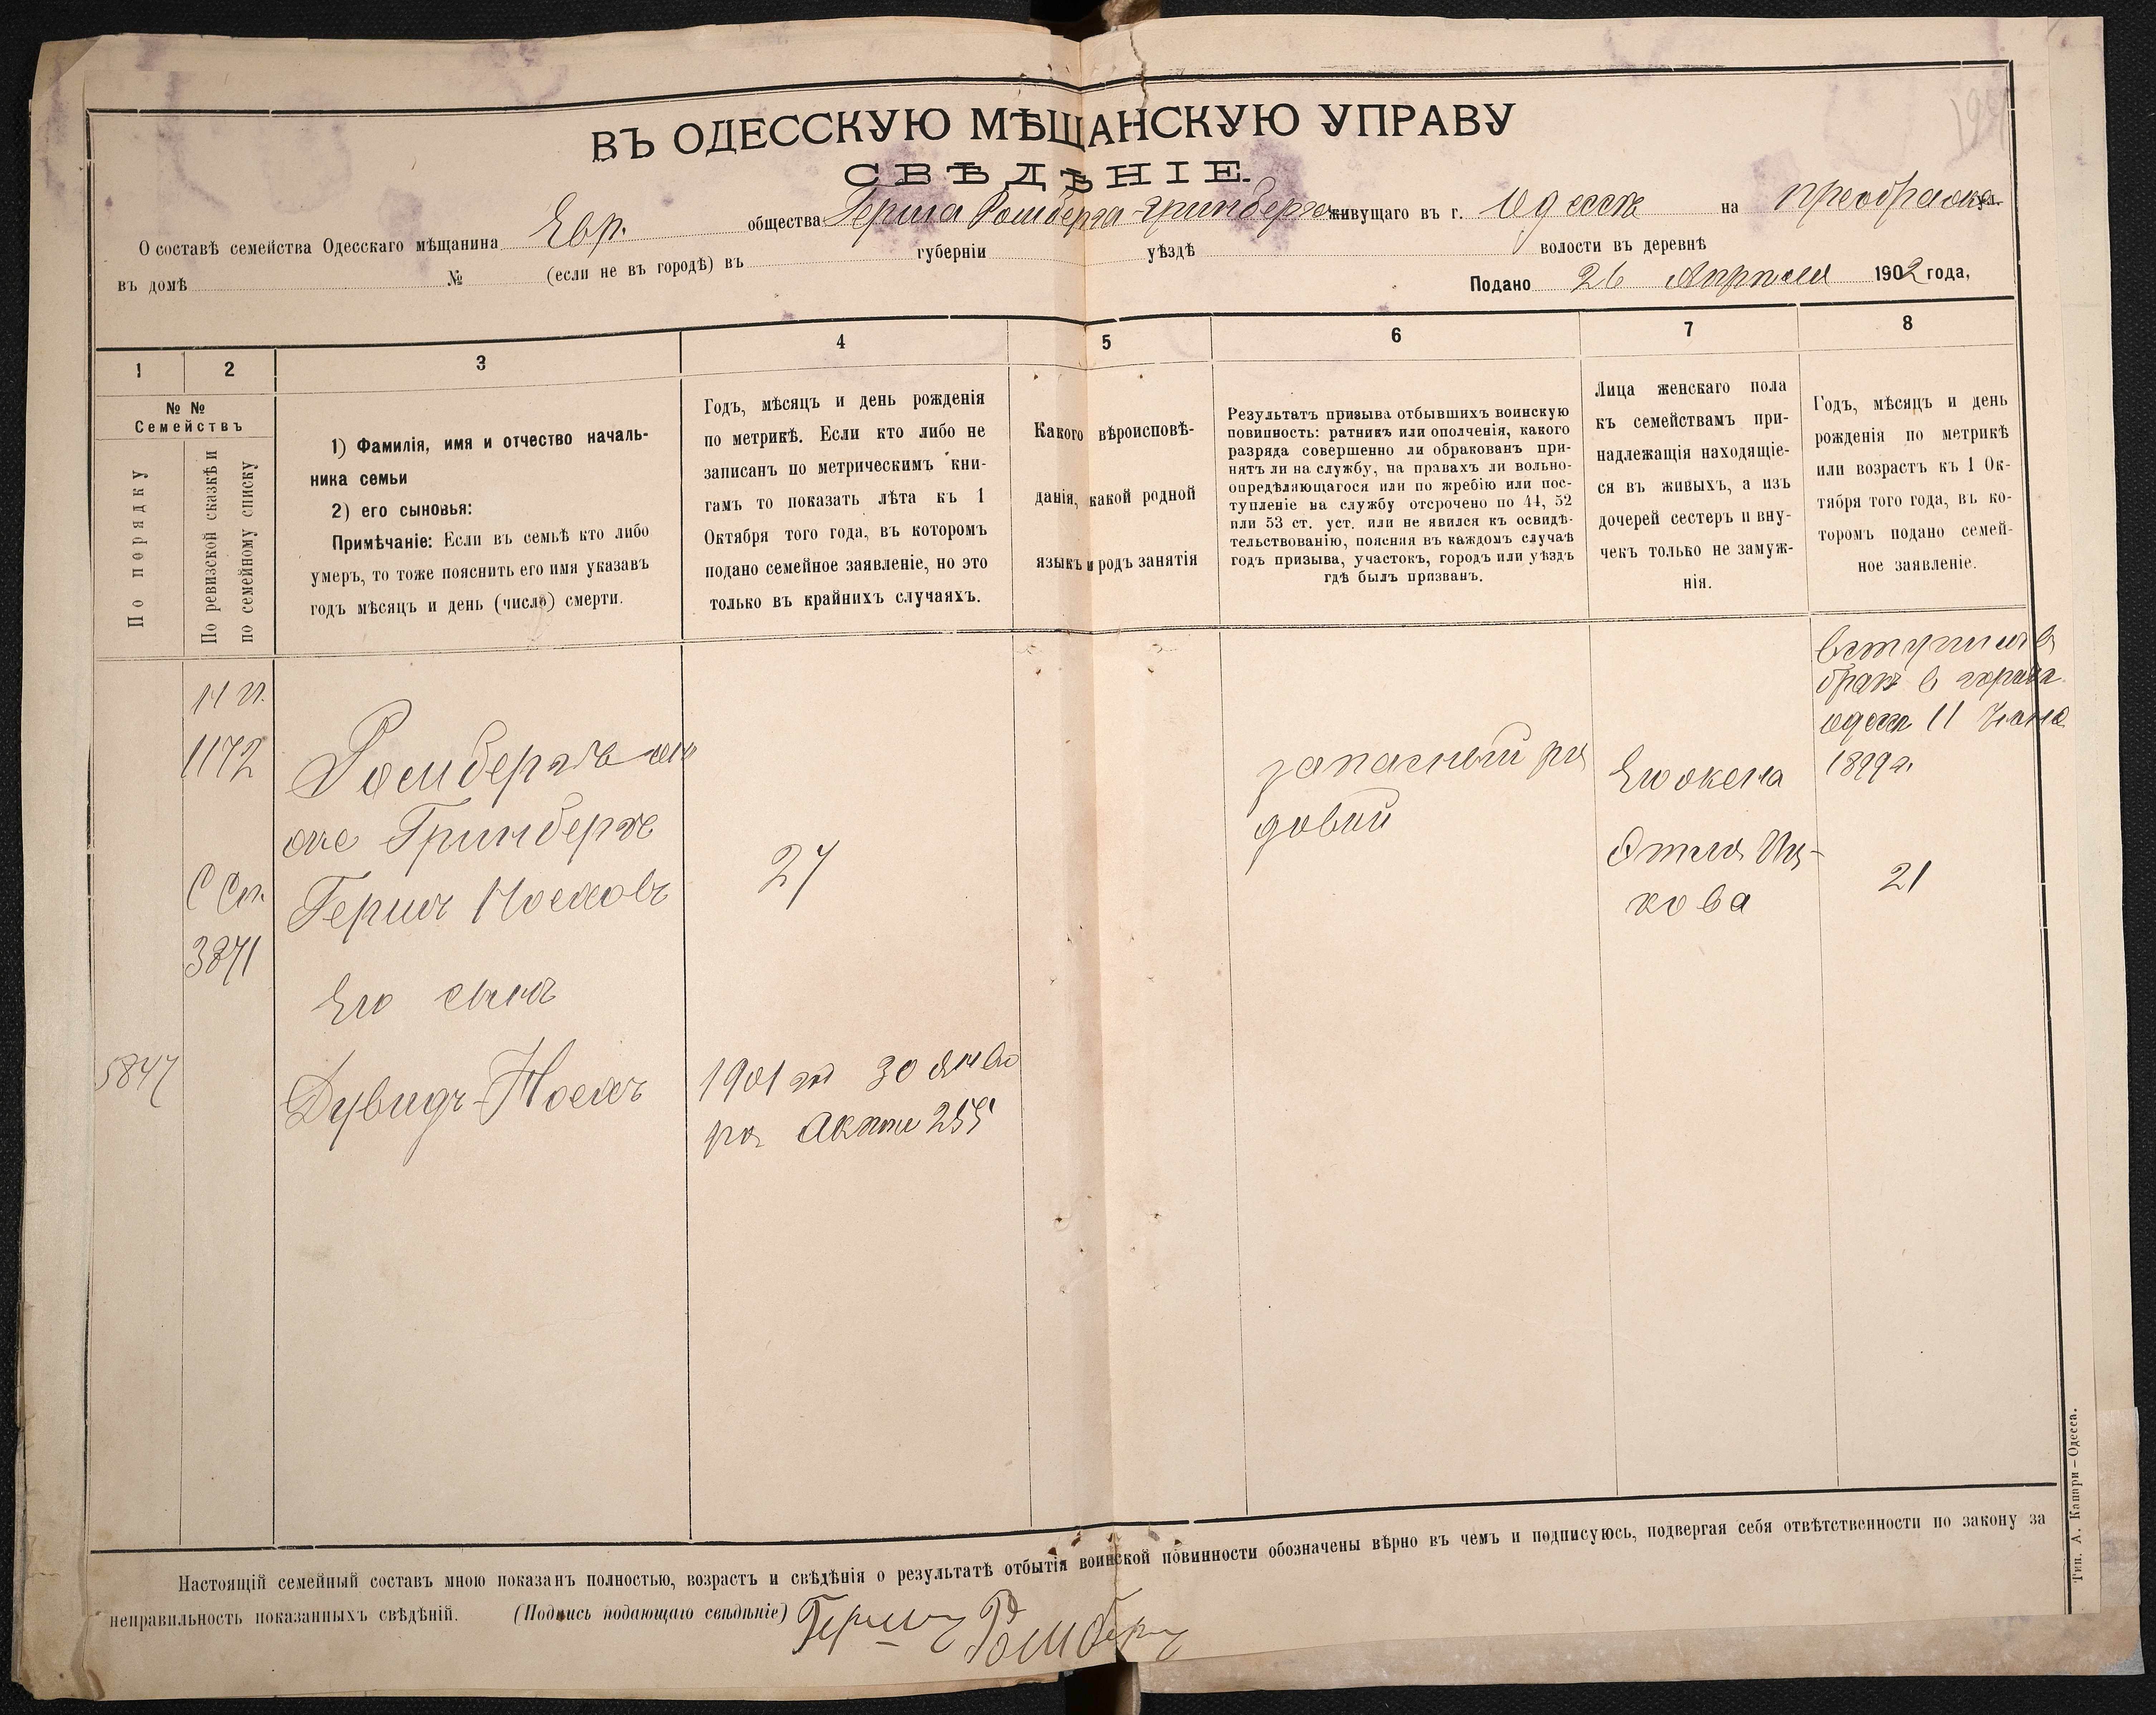 ВЪ ОДЕССКУЮ МѢЩАНСКУЮ УПРАВУ
СВѢДѢНІЕ.
О составѣ семейства Одесскаго мѣщанина Евр. общества Герша Ромберга-Гринберга живущаго въ г. Одессѣ на Преображ. ул.
въ домѣ № (если не въ городѣ) въ губерніи уѣздѣ волости въ деревнѣ
Подано 26 Апрѣля 1902 года,
1 2 3 4 5 6 7 8
№ №
Семействъ
По порядку
По ревизской сказкѣ и
по семейному списку
1) Фамилія, имя и отчество началь-
ника семьи
2) его сыновья:
Примѣчаніе: Если въ семьѣ кто либо
умеръ, то тоже пояснить его имя указавъ
годъ мѣсяцъ и день (число) смерти.
Годъ, мѣсяцъ и день рожденія
по метрикѣ. Если кто либо не
записанъ по метрическимъ кни-
гамъ то показать лѣта къ 1
Октября того года, въ которомъ
подано семейное заявленіе, но это
только въ крайнихъ случаяхъ.
Какого вѣроисповѣ-
данія, какой родной
языкъ и родъ занятія
Результатъ призыва отбывшихъ воинскую
повинность: ратникъ или ополченія, какого
разряда совершенно ли обракованъ при-
нятъ ли на службу, на правахъ ли вольно-
опредѣляющагося или по жребію или пос-
тупленіе на службу отсрочено по 44, 52
или 53 ст. уст. или не явился къ освидѣ-
тельствованію, поясняя въ каждомъ случаѣ
годъ призыва, участокъ, городъ или уѣздъ
гдѣ былъ призванъ.
Лица женскаго пола
къ семействамъ при-
надлежащія находящіе-
ся въ живыхъ, а изъ
дочерей сестеръ и вну-
чекъ только не замуж-
нія.
Годъ, мѣсяцъ и день
рожденія по метрикѣ
или возрастъ къ 1 Ок-
тября того года, въ ко-
торомъ подано семей-
ное заявленіе.
1172
Ромбергъ онъ
же Гринбергъ
Гершъ Носеховъ
27
запасный ря
довой
Его жена
Этля Иц-
кова
вступилъ въ
бракъ в городѣ
одесѣ 11
1899 г.
21
3871
Его сынъ
5847
Дувидъ-Носехъ
1901 го 30 Янва
ря Актом 255
Настоящій семейный составъ мною показанъ полностью, возрастъ и свѣдѣнія о результатѣ отбытія воинской повинности обозначены вѣрно въ чемъ и подписуюсь, подвергая себя отвѣтственности по закону за
неправильность показанныхъ свѣдѣній. (Подпись подающаго свѣдѣніе) Гершъ Ромбергъ
Тип. А. Капари—Одесса.